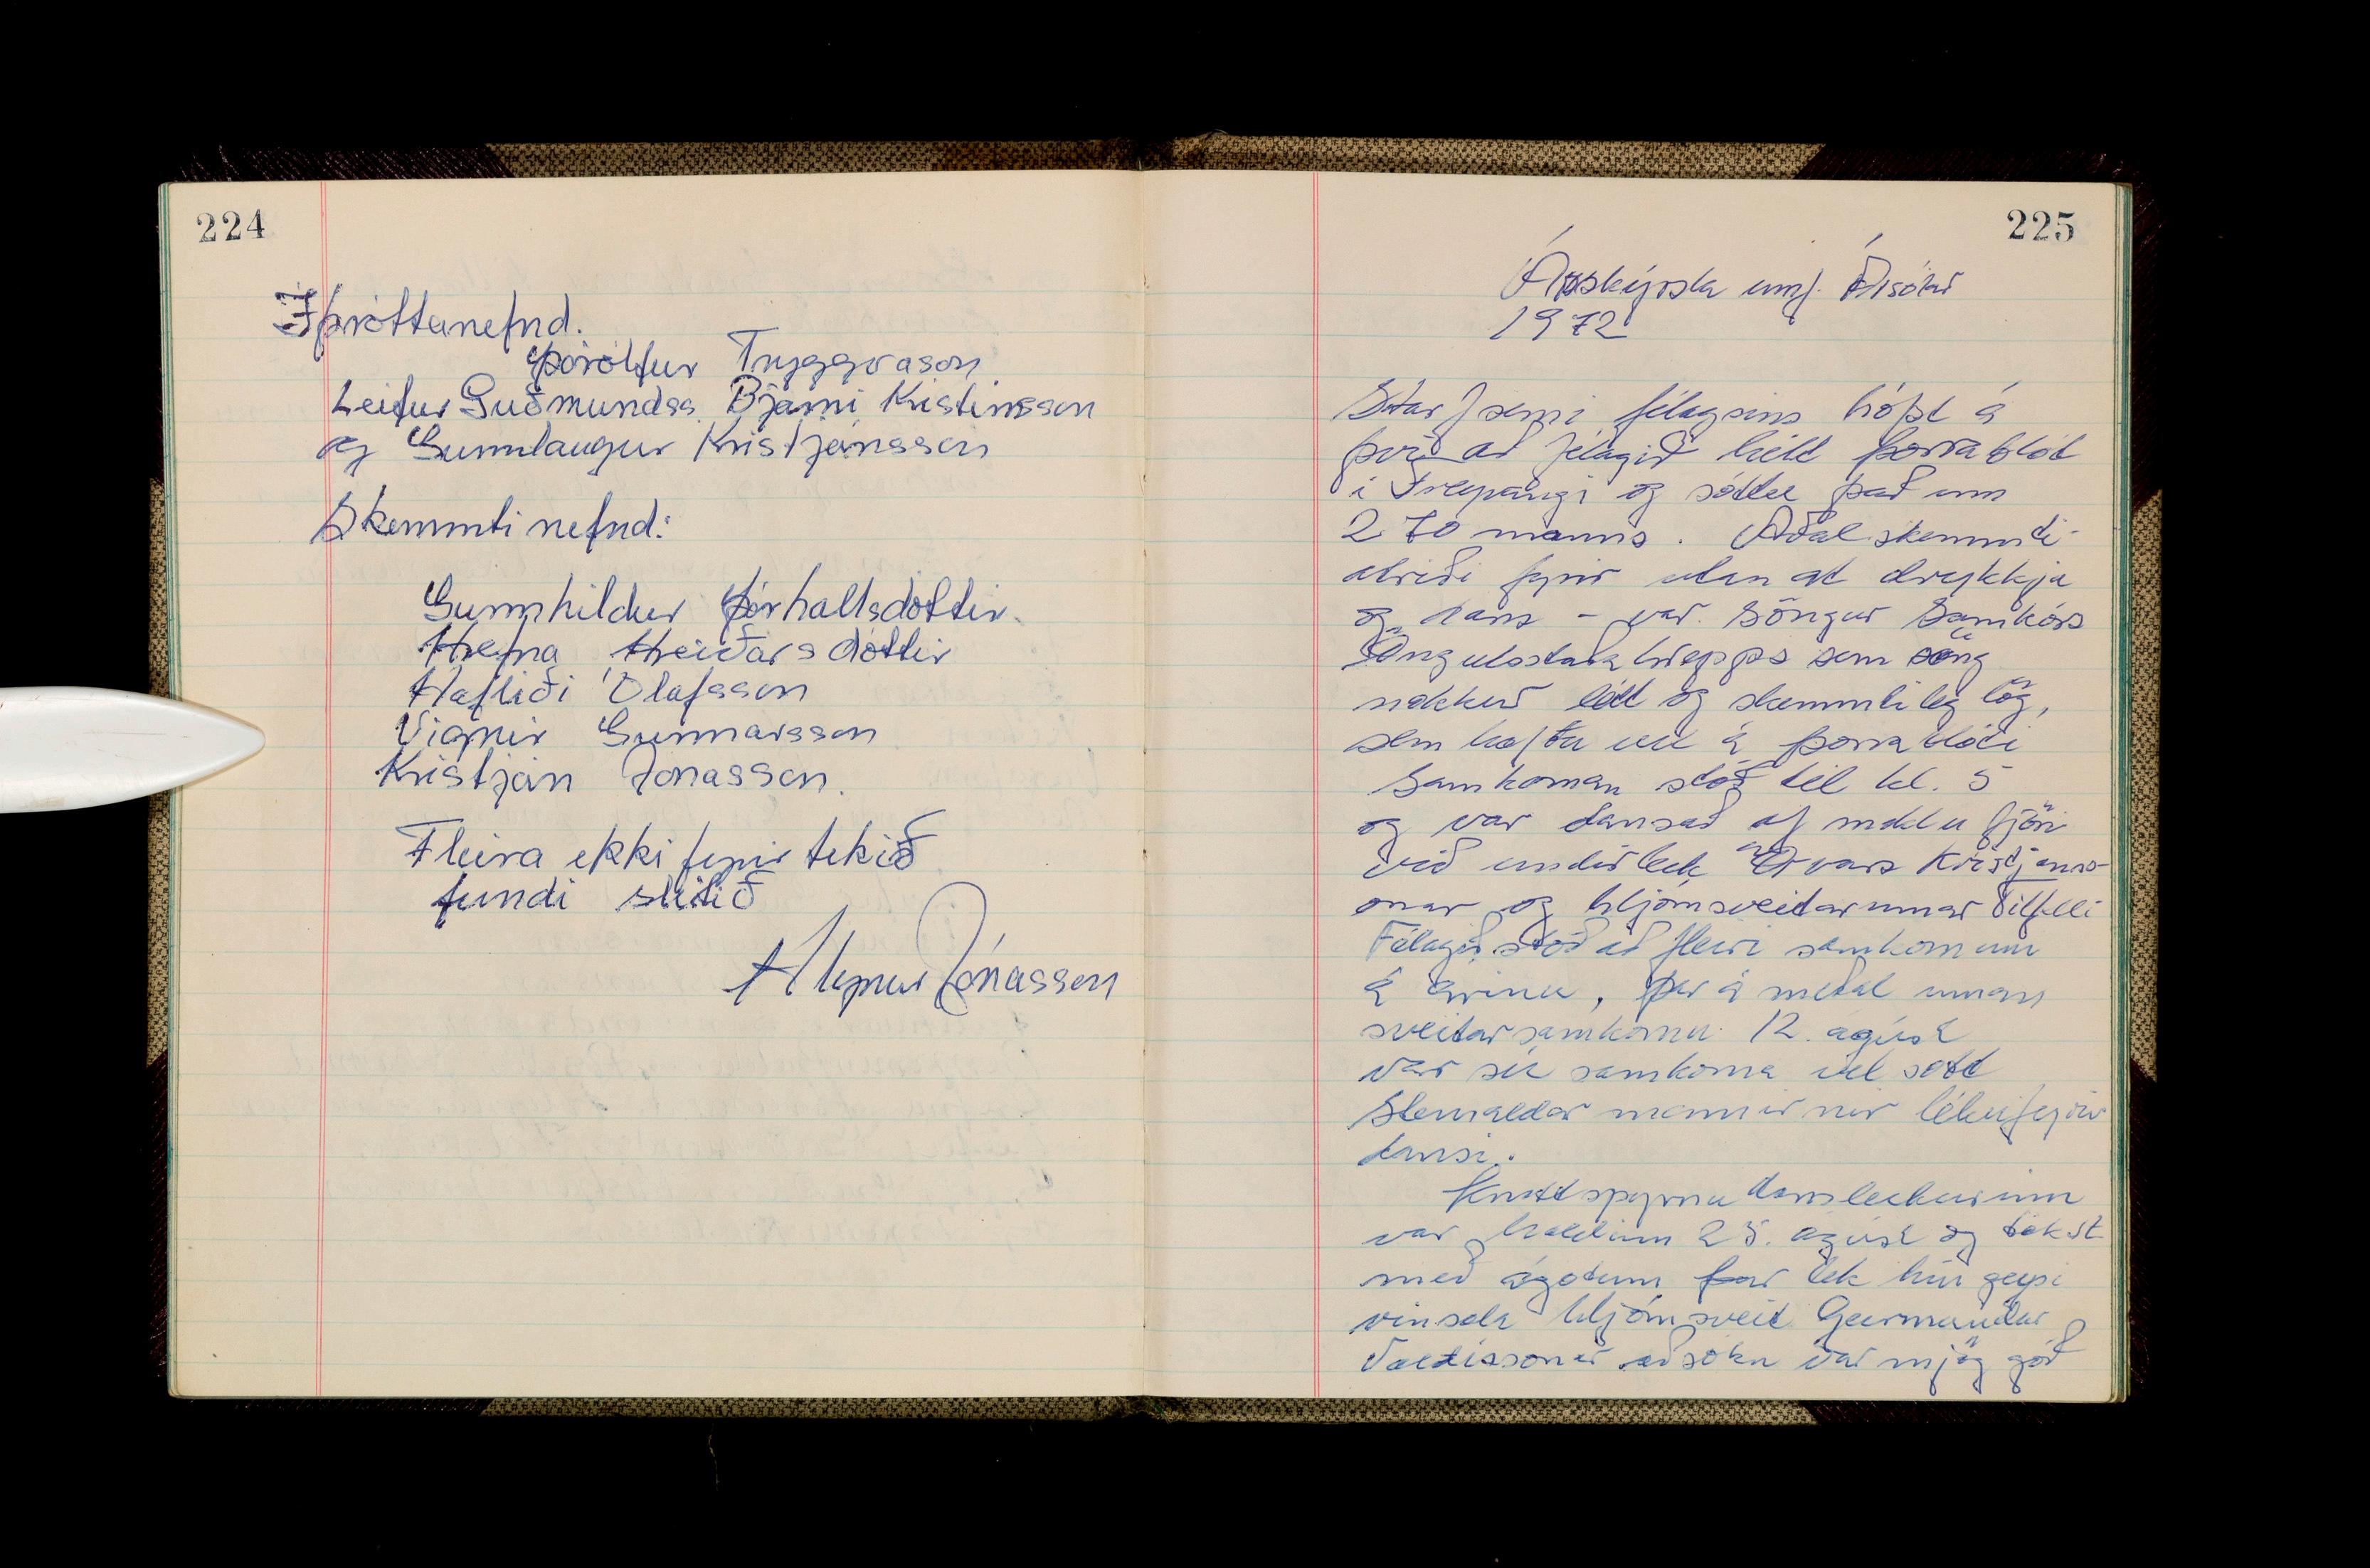 224
Íþróttanefnd.
Þórólfur Tryggvason
Leifur Guðmundss. Bjarni Kristinsson
og Gunnlaugur Kristjánsson
Skemmtinefnd:
Gunnhildur Þórhallsdóttir.
Hrefna Hreiðarsdóttir
Hafliði Ólafsson
Vignir Gunnarsson
Kristján Jónasson.
Fleira ekki fyrir tekið
fundi slitið
Jónasson
225
Ársskýrsla umf. Ársólar
1972
Starfsemi félagsins hófst á
því að félagið hélt þorrablót
í Freyvangi og sóttu það um
270 manns. Aðalskemmti-
atriði fyrir utan át drykkju
og dans - var söngur Samkórs
Öngulsstaðahrepps sem söng
nokkur létt og skemmtileg lög,
sem hæfðu vel á þorrablóti
Samkoman stóð til kl. 5
og var dansað af miklu fjöri
við undirleik Örvars Kristjáns-
onar og hljómsveitarinnar
Félagið stóð að fleiri samkomum
á árinu, þar á meðal innan
sveitarsamkomu 12. ágúst
var sú samkoma vel sótt
Steinaldarmennirnir léku fyrir
dansi.
Knattspyrnudansleikurinn
var haldinn 25. ágúst og tókst
með ágætum þar lék hin geysi
vinsæla hljómsveit Geirmundar
Valtýssonar aðsókn var mjög góð